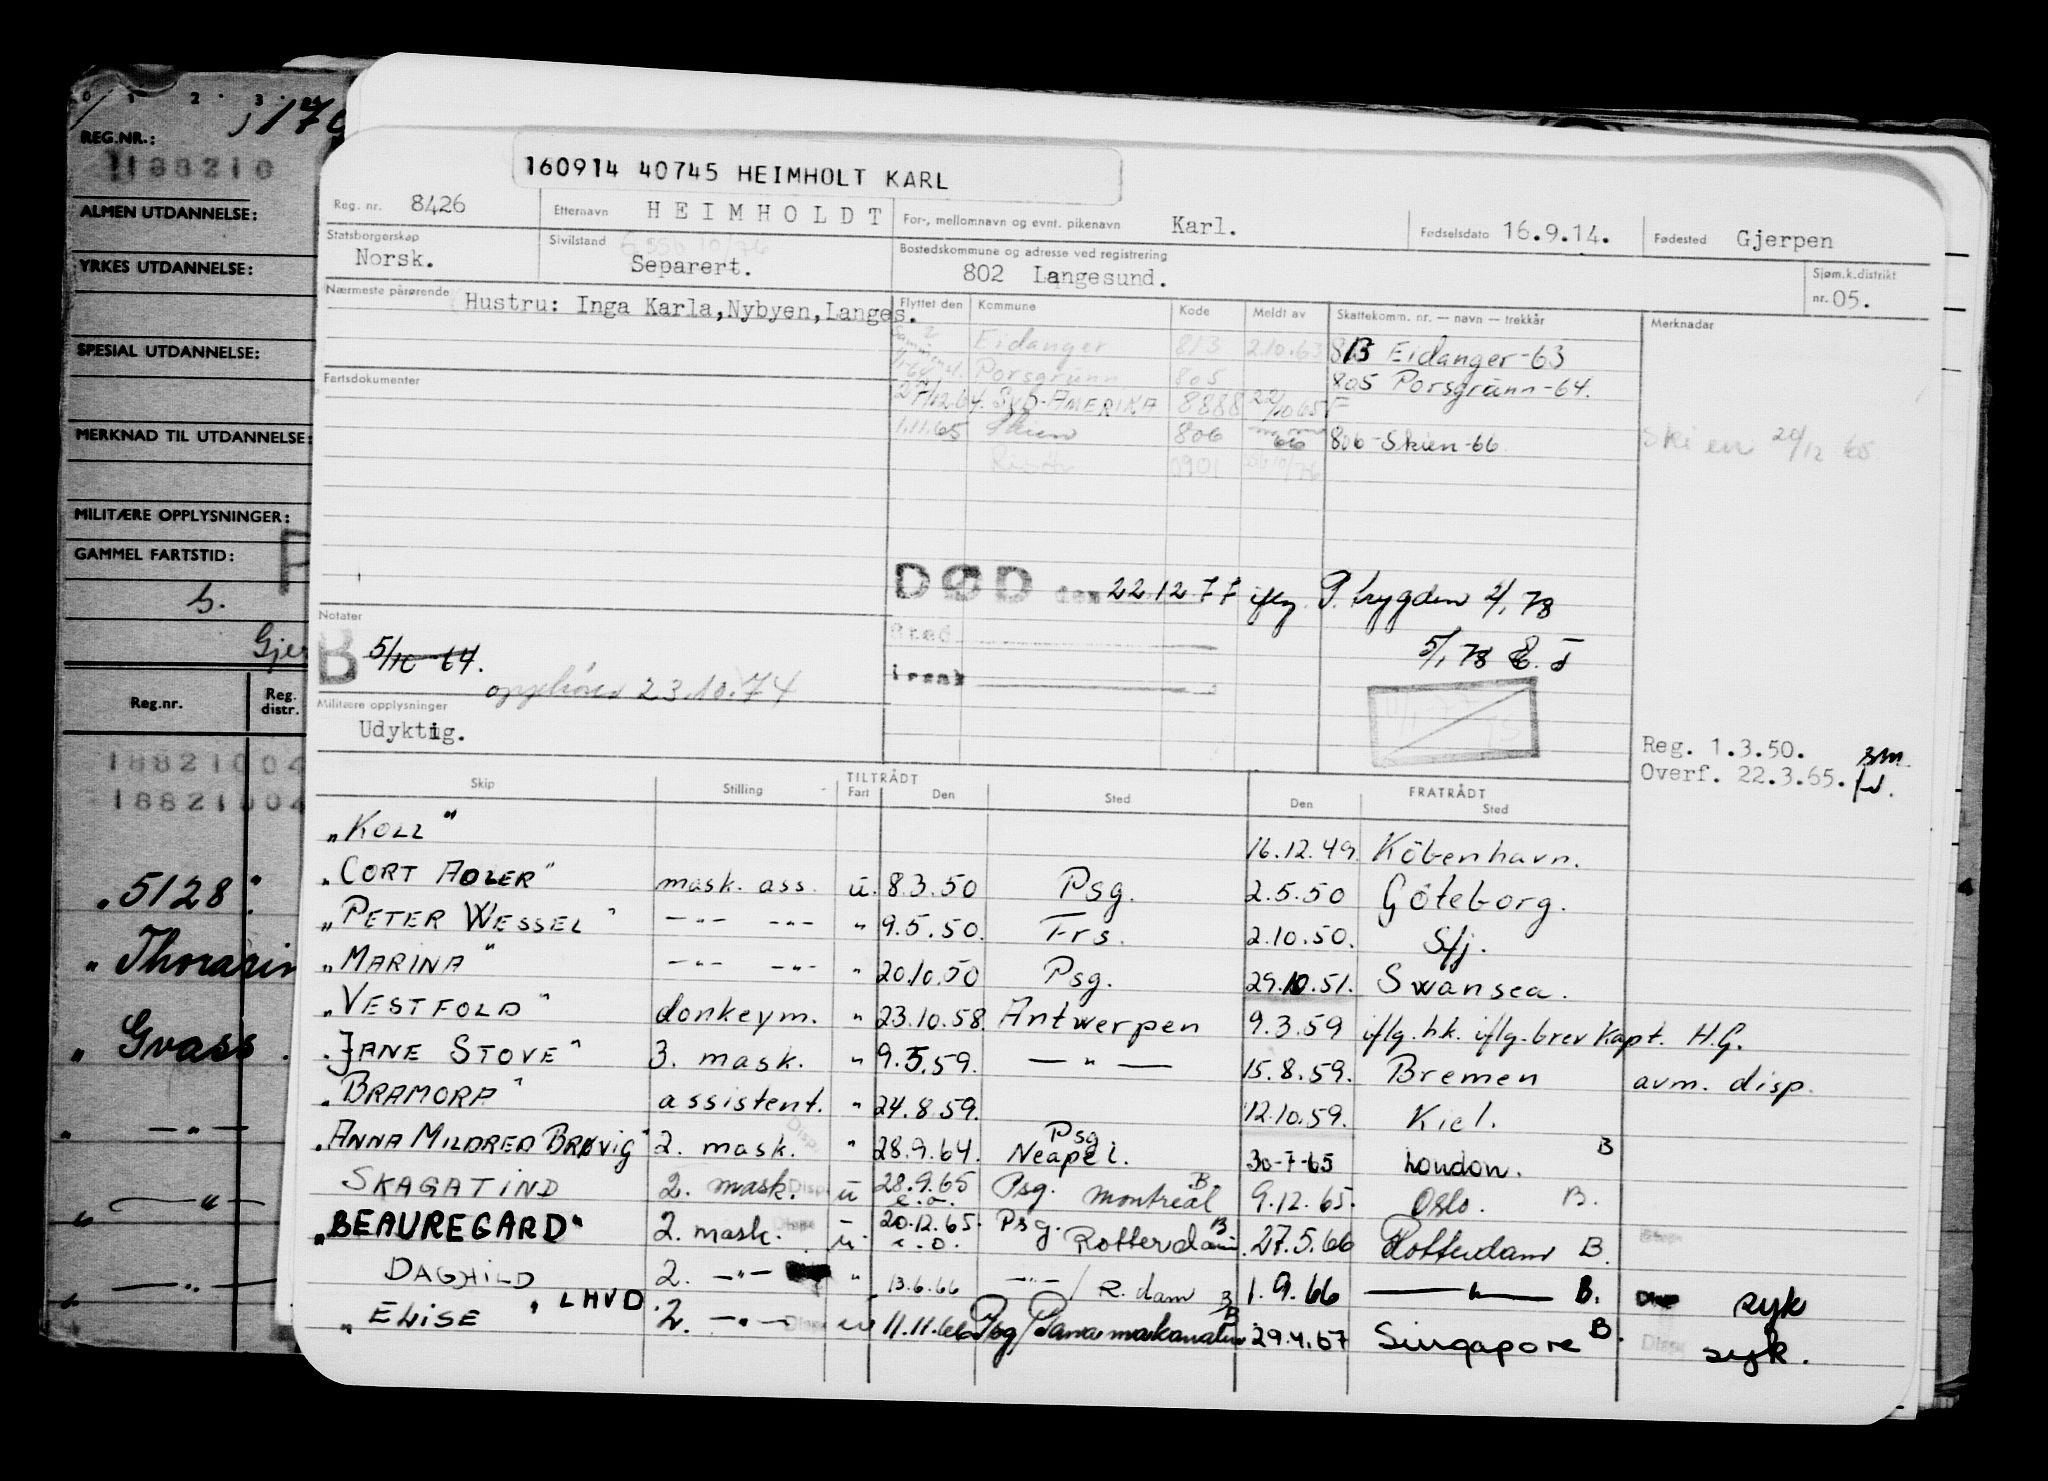 REG.NR.:
188210
ALMEN UTDANNELSE:
YRKES UTDANNELSE:
SPESIAL UTDANNELSE:
MERKNAD TIL UTDANNELSE:
MILITÆRE OPPLYSNINGER:
GAMMEL FARTSTID:
Reg.nr. Reg. distr.
188210 04
188210 04
"5128"
" Thorasin
" Gvass.
" — " —
" — " —
" — " —
160914 40745 HEIMHOLT KARL
Reg. nr. 8426 Etternavn HEIMHOLDT For-, mellomnavn og evnt. pikenavn Karl. Fødselsdato 16.9.14. Fødested Gjerpen
Statsborgerskap Norsk. Sivilstand Separert. Bostedskommune og adresse ved registrering 802 Langesund. Sjøm.k.distrikt nr. 05.
Nærmeste pårørende Hustru: Inga Karla, Nybyen, Langes.
Flyttet den Kommune Kode Meldt av Skattekomm. nr. — navn — trekkår Merknadar
Eidanger 813 2.10.63 813 Eidanger-63
Porsgrunn 805 805 Porsgrunn-64.
Fartsdokumenter
SYD-AMERIKA 8888 22/10 65 F
1.11.65 Skien 806 66 806-Skien-66 Skien 20/12 65
0901
DØD den 22.12.77 iflg. P. trygden 2/1 78
Notater
B 5/10-64.
Sted
5/1 78
opphøres 23.10.74
irenk
Militære opplysninger
Udyktig.
Reg. 1.3.50.
Overf. 22.3.65.
Skip Stilling TILTRÅDT Fart Den Sted FRATRÅDT Den Sted
"KOLL" 16.12.49. Köbenhavn.
"CORT ADLER" mask. ass. u. 8.3.50 Psg. 2.5.50 Göteborg.
"PETER WESSEL" —"— —"— " 9.5.50. Frs. 2.10.50. Sfj.
"MARINA" —"— —"— " 20.10.50 Psg. 29.10.51. Swansea.
"VESTFOLD" donkeym. " 23.10.58. Antwerpen 9.3.59 iflg. hk. iflg. brev Kapt. H.G.
"JANE STOVE" 3. mask. " 9.5.59. — " — 15.8.59. Bremen avm. disp.
"BRAMORA" assistent. " 24.8.59. 12.10.59. Kiel.
"ANNA MILDRED BRØVIG" 2. mask. " 28.9.64. Psg Neapel. 30-7-65 London. B
SKAGATIND 2. mask. Disp u 28.9.65 e.o. Psg. Montreal B 9.12.65. Oslo. B.
"BEAUREGARD" 2. mask. u. 20.12.65. e.o. Psg. Rotterdam B 27.5.66 Rotterdam B
DAGHILD 2. —"— " 13.6.66 —"— / R.dam B 1.9.66 — " — B. Disp syk
" ELISE " LHVD 2. —"— Disp u 11.11.66 Psg/Panamakanalen B 29.4.67 Singapore B. Disp syk.